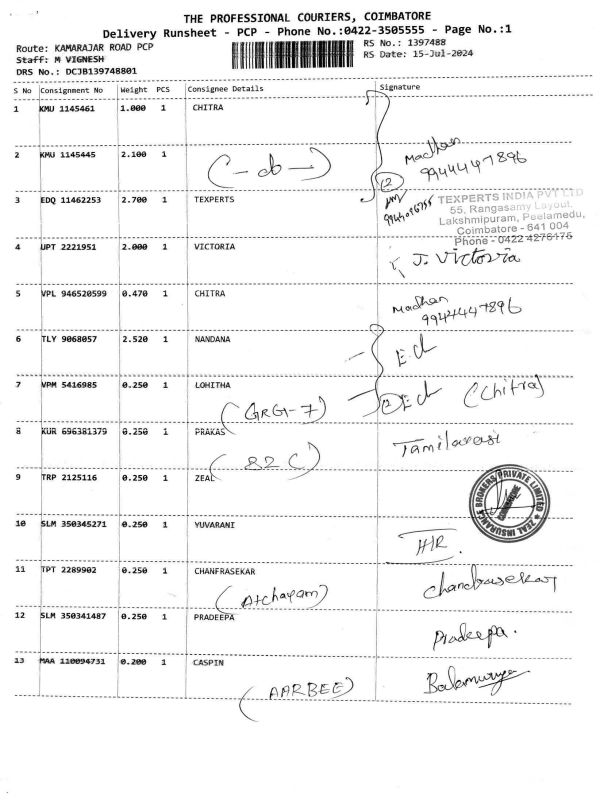 THE PROFESSIONAL COURIERS, COIMBATORE
Delivery Runsheet - PCP - Phone No.:0422-3505555 - Page No.:1
Route: KAMARAJAR ROAD PCP
RS No.: 1397488
Staff: M VIGNESH
RS Date: 15-Jul-2024
DRS No.: DCJB139748801
S No Consignment No Weight PCS Consignee Details Signature
1 KMU 1145461 1.000 1 CHITRA
2 KMU 1145445 2.100 1 Madhan
(-do-) 9944447896
(2)
3 EDQ 11462253 2.700 1 TEXPERTS TEXPERTS INDIA PVT LTD
55, Rangasamy Layout,
Lakshmipuram, Peelamedu,
Coimbatore - 641 004
Phone - 0422 4276175
4 UPT 2221951 2.000 1 VICTORIA J. Victoria
5 VPL 946520599 0.470 1 CHITRA Madhan
9944447896
6 TLY 9068057 2.520 1 NANDANA
7 VPM 5416985 0.250 1 LOHITHA (2) (Chitra)
(GRG1-7)
8 KUR 696381379 0.250 1 PRAKAS Tamilarasi
(82 C)
9 TRP 2125116 0.250 1 ZEAL
ZEAL INSURANCE BROKERS PRIVATE LIMITED
COIMBATORE
10 SLM 350345271 0.250 1 YUVARANI HR.
11 TPT 2289902 0.250 1 CHANFRASEKAR Chandrasekar
(Atchayam)
12 SLM 350341487 0.250 1 PRADEEPA Pradeepa.
13 MAA 110094731 0.200 1 CASPIN
(AARBEE)